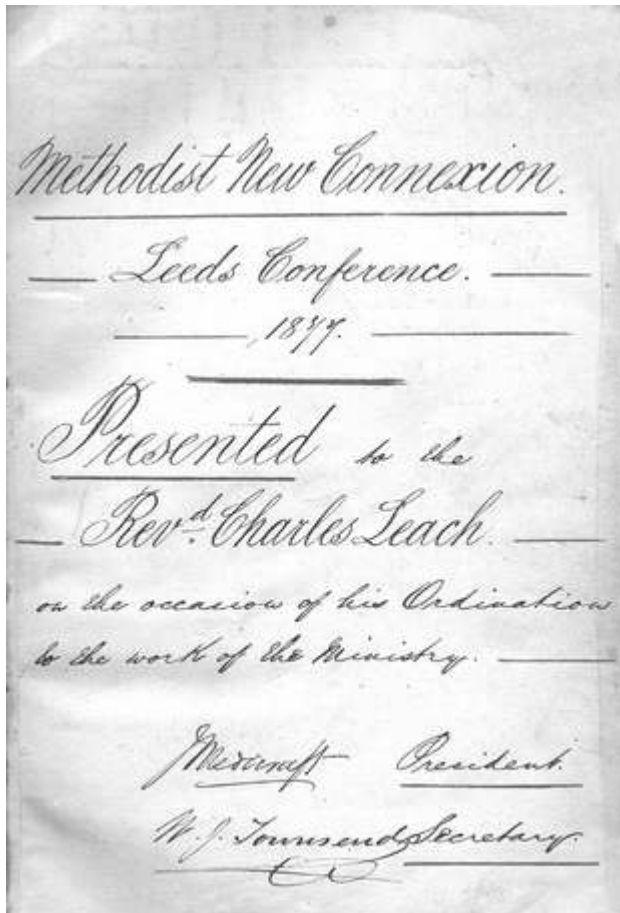 Methodist New Connexion.
Leeds Conference.
1877.
Presented to the
Revd. Charles Leach.
on the occasion of his Ordination
to the work of the Ministry.
J Medicraft President.
W. J. Townsend Secretary.